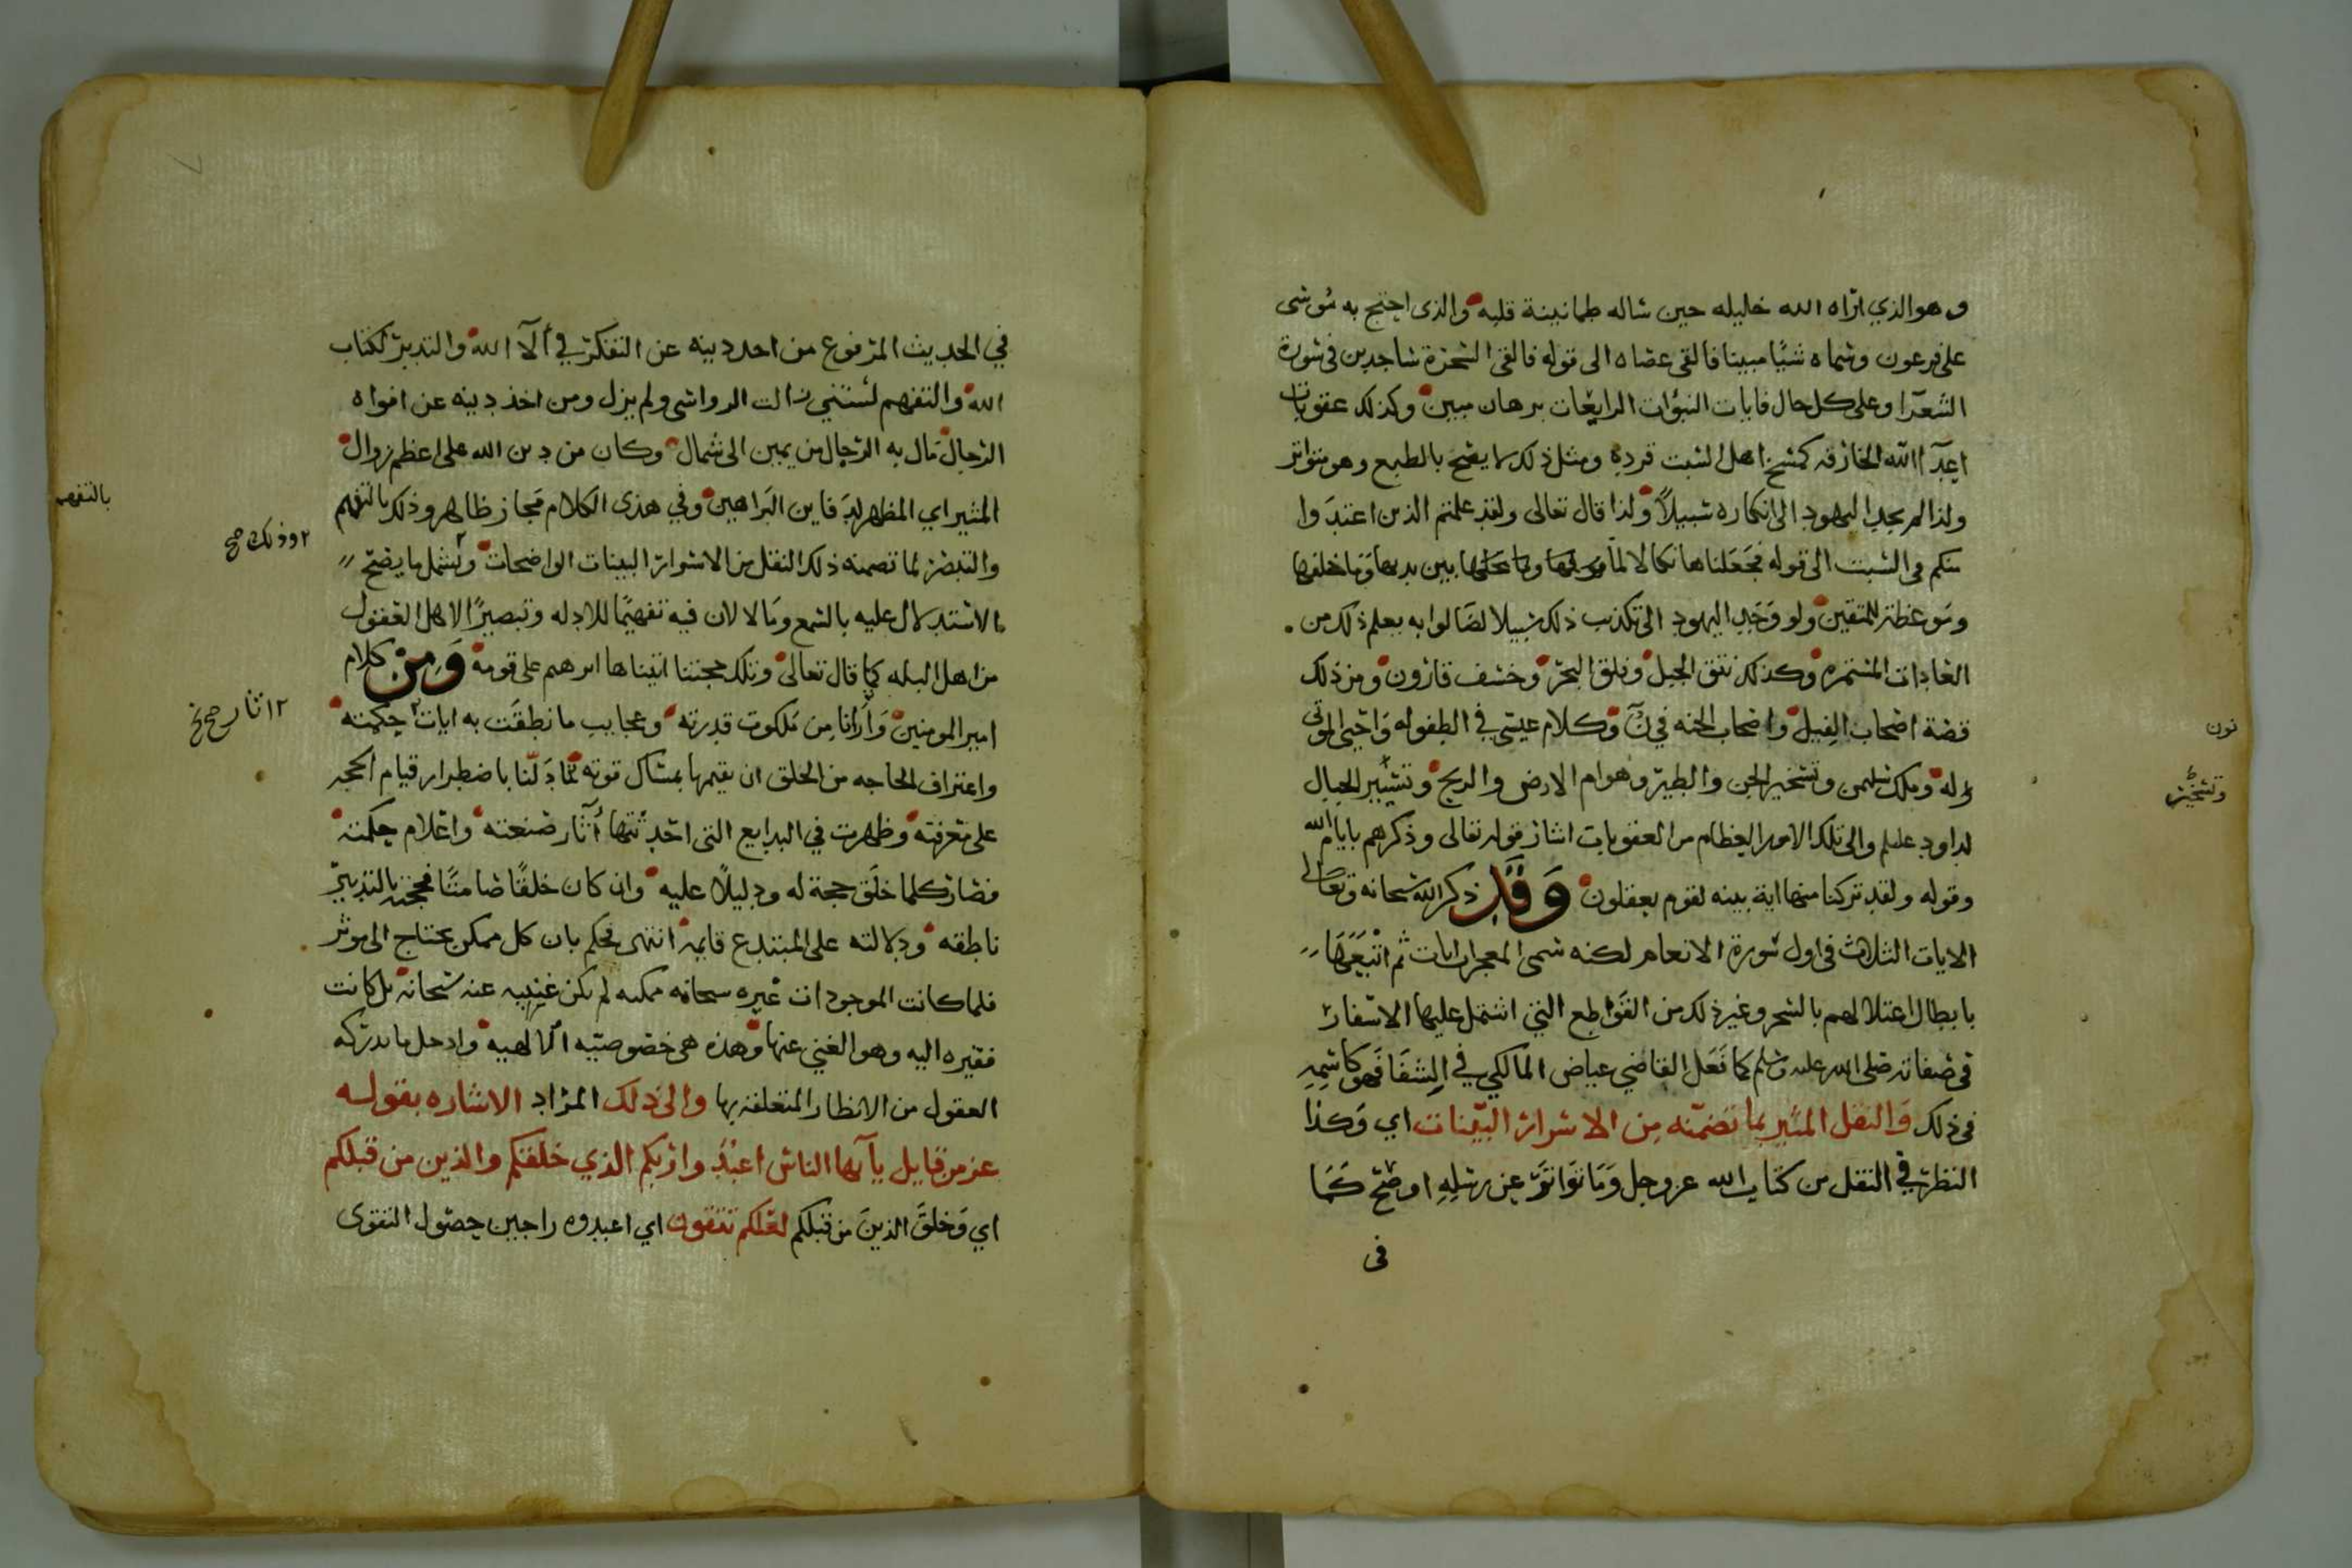 وهو الذي اراه الله خليله حين ساله طمانينة قلبه والذى احتج به موسى
على فرعون وسماه شيًا مبينا فالقى عصاه الى قوله فالقى السحرة ساجدين فى سورة
الشعرا وعلى كل حال فايات النبوات الرايعات برهان مبين وكذلك عقوبات
اعدآ الله الخارقه كمسخ اهل السبت قردة ومثل ذلك لا يصح بالطبع وهو متواتر
ولذا لم يجد اليهود الى انكاره سبيلاً ولذا قال تعالى ولقد علمتم الذين اعتدوا
منكم فى السبت الى قوله فجعلناها نكالا لما بين يديها وما خلفها
وموعظة للمتقين ولو وجد اليهود الى تكذيب ذلك سبيلا لصالوا به بعلم ذلك من
العادات المستمره وكذلك نتق الجبل وفلق البحر وخسف قارون ومن ذلك
قصة اصحاب الفيل واصحاب الجنه في ن وكلام عيسى في الطفوله واحيى الموتى
له وملك سليمن وتسخير الجن والطير وهوام الارض والريح وتسيير الجبال
لداود عليلم والى تلك الامور العظام من العقوبات اشار قوله تعالى وذكرهم بايام الله
وقوله ولقد تركنا منها اية بينه لقوم يعقلون وقد ذكر الله سبحانه وتعالى
الايات الثلاث فى اول سورة الانعام لكنه سمى المعجزات ايات ثم اتبعها
بابطال اعتلالهم بالسحر وغير ذلك من القواطع التي اشتمل عليها الاسفار
فى صفاته صلى الله عليه وسلم كما فعل القاضي عياض المالكي في الشفا فهو كاسمه
فى ذلك والنقل المثير بما تضمنه من الاسرار البينات اي وكذا
النظر في النقل من كتاب الله عز وجل وما تواتر عن رسله اوضح كما
فى
نون
وتسخير
في الحديث المرفوع من اخذ دينه عن التفكر في ألآ الله والتدبر لكتاب
الله والتفهم لسنتي زالت الرواسى ولم يزل ومن اخذ دينه عن افواه
الرجال مال به الرجال من يمين الى شمال وكان من دين الله على اعظم زوال
المثير اي المظهر لدفاين البراهين وفي هذى الكلام مجاز ظاهر وذلك بالتفهم
والتبصر لما تضمنه ذلك النقل من الاسرار البينات الواضحات ويشمل ما يصح
الاستدلال عليه بالسمع وما لا لان فيه تفهيمًا للادله وتبصيرًا لاهل العقول
من اهل البله كما قال تعالى وتلك حجتنا اتيناها ابرهيم على قومه ومن كلام
امير المومنين وارانا من ملكوت قدرته وعجايب ما نطقت به ايات حكمته
واعتراف الحاجه من الخلق ان يقيمها بمساك قوته ما دلنا باضطرار قيام الحجه
على معرفته وظهرت في البدايع التى احدثتها آثار صنعته واعلام حكمته
فصار كلما خلق حجة له ودليلاً عليه وان كان خلقًا صامتًا فحجته بالتدبير
ناطقه ودلالته على المبتدع قايمه انتهى فحكم بان كل ممكن يحتاج الى موثر
فلما كانت الموجودات غيره سبحانه ممكنه لم يكن غنيه عنه سبحانه بل كانت
فقيره اليه وهو الغني عنها وهذه هى خصوصيته الالهيه وادخل ما يدركه
العقول من الانظار المتعلقة بها والى ذلك المراد الاشاره بقوله
عز من قايل يآ ايها الناس اعبدوا ربكم الذي خلقكم والذين من قبلكم
اي وخلق الذين من قبلكم لعلكم تتقون اي اعبدوه راجين حصول التقوى
بالتفهم
وذلك صح
اثار صح